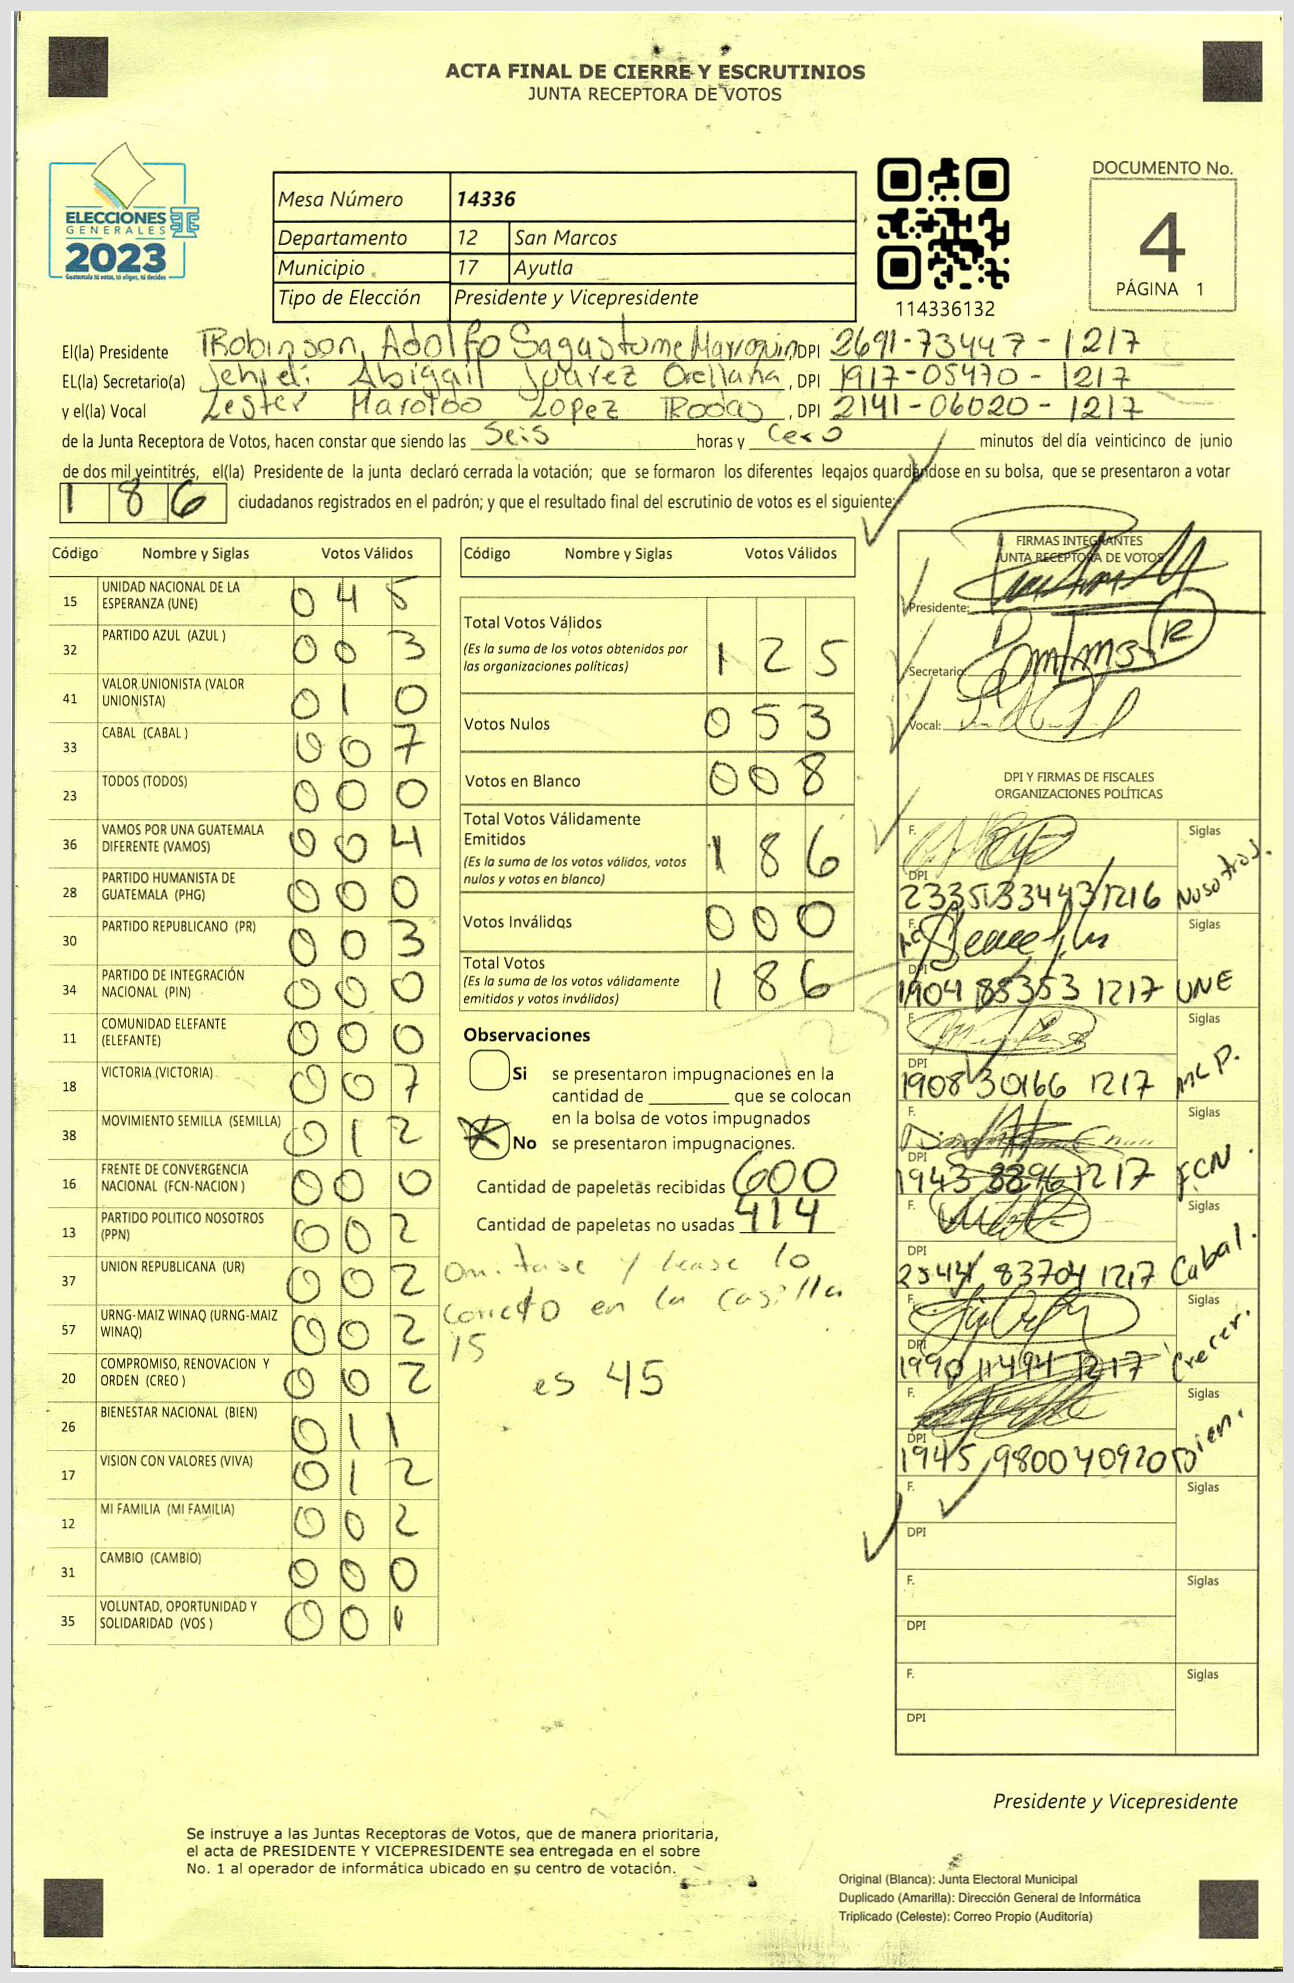 ACTA FINAL DE CIERRE Y ESCRUTINIOS
JUNTA RECEPTORA DE VOTOS
ELECCIONES
GENERALES
2023
Guatemala tú votas, tú eliges, tú decides
Mesa Número 14336
Departamento 12 San Marcos
Municipio 17 Ayutla
Tipo de Elección Presidente y Vicepresidente
114336132
DOCUMENTO No.
4
PÁGINA 1
El(la) Presidente Robinson Adolfo Sagastume Marroquin DPI 2691-73447-1217
EL(la) Secretario(a) Abigail Juarez Orellana, DPI 1917-05470-1217
y el(la) Vocal Lester Haroldo Lopez Rodas, DPI 2141-06020-1217
de la Junta Receptora de Votos, hacen constar que siendo las Seis horas y Cero minutos del día veinticinco de junio
de dos mil veintitrés, el(la) Presidente de la junta declaró cerrada la votación; que se formaron los diferentes legajos quardándose en su bolsa, que se presentaron a votar
186 ciudadanos registrados en el padrón; y que el resultado final del escrutinio de votos es el siguiente:
Código Nombre y Siglas Votos Válidos
15 UNIDAD NACIONAL DE LA ESPERANZA (UNE) 045
32 PARTIDO AZUL (AZUL ) 003
41 VALOR UNIONISTA (VALOR UNIONISTA) 010
33 CABAL (CABAL ) 007
23 TODOS (TODOS) 000
36 VAMOS POR UNA GUATEMALA DIFERENTE (VAMOS) 004
28 PARTIDO HUMANISTA DE GUATEMALA (PHG) 000
30 PARTIDO REPUBLICANO (PR) 003
34 PARTIDO DE INTEGRACIÓN NACIONAL (PIN) 000
11 COMUNIDAD ELEFANTE (ELEFANTE) 000
18 VICTORIA (VICTORIA) 007
38 MOVIMIENTO SEMILLA (SEMILLA) 012
16 FRENTE DE CONVERGENCIA NACIONAL (FCN-NACION ) 000
13 PARTIDO POLITICO NOSOTROS (PPN) 002
37 UNION REPUBLICANA (UR) 002
57 URNG-MAIZ WINAQ (URNG-MAIZ WINAQ) 002
20 COMPROMISO, RENOVACION Y ORDEN (CREO ) 002
26 BIENESTAR NACIONAL (BIEN) 011
17 VISION CON VALORES (VIVA) 012
12 MI FAMILIA (MI FAMILIA) 002
31 CAMBIO (CAMBIO) 000
35 VOLUNTAD, OPORTUNIDAD Y SOLIDARIDAD (VOS ) 001
Código Nombre y Siglas Votos Válidos
Total Votos Válidos 125
(Es la suma de los votos obtenidos por
las organizaciones políticas)
Votos Nulos 053
Votos en Blanco 008
Total Votos Válidamente
Emitidos 186
(Es la suma de los votos válidos, votos
nulos y votos en blanco)
Votos Inválidos 000
Total Votos 186
(Es la suma de los votos válidamente
emitidos y votos inválidos)
Observaciones
Si se presentaron impugnaciones en la
cantidad de ________ que se colocan
en la bolsa de votos impugnados
No se presentaron impugnaciones.
Cantidad de papeletas recibidas 600
Cantidad de papeletas no usadas 414
Omitase y lease lo
correcto en la casilla
15
es 45
FIRMAS INTEGRANTES
JUNTA RECEPTORA DE VOTOS
Presidente:
Secretario:
Vocal:
DPI Y FIRMAS DE FISCALES
ORGANIZACIONES POLÍTICAS
F. Siglas
DPI 2335133443 1216 Nosotros.
F. Siglas
DPI 1904 85353 1217 UNE
F. Siglas
DPI 1908 30166 1217 MLP.
F. Siglas
DPI 1943 1217 FCN.
F. Siglas
DPI 2544 83704 1217 Cabal.
F. Siglas
DPI 1990 11494 1217 Creer.
F. Siglas
DPI 1945 98004 0920 Bien.
F. Siglas
DPI
F. Siglas
DPI
F. Siglas
DPI
Presidente y Vicepresidente
Se instruye a las Juntas Receptoras de Votos, que de manera prioritaria,
el acta de PRESIDENTE Y VICEPRESIDENTE sea entregada en el sobre
No. 1 al operador de informática ubicado en su centro de votación.
Original (Blanca): Junta Electoral Municipal
Duplicado (Amarilla): Dirección General de Informática
Triplicado (Celeste): Correo Propio (Auditoría)